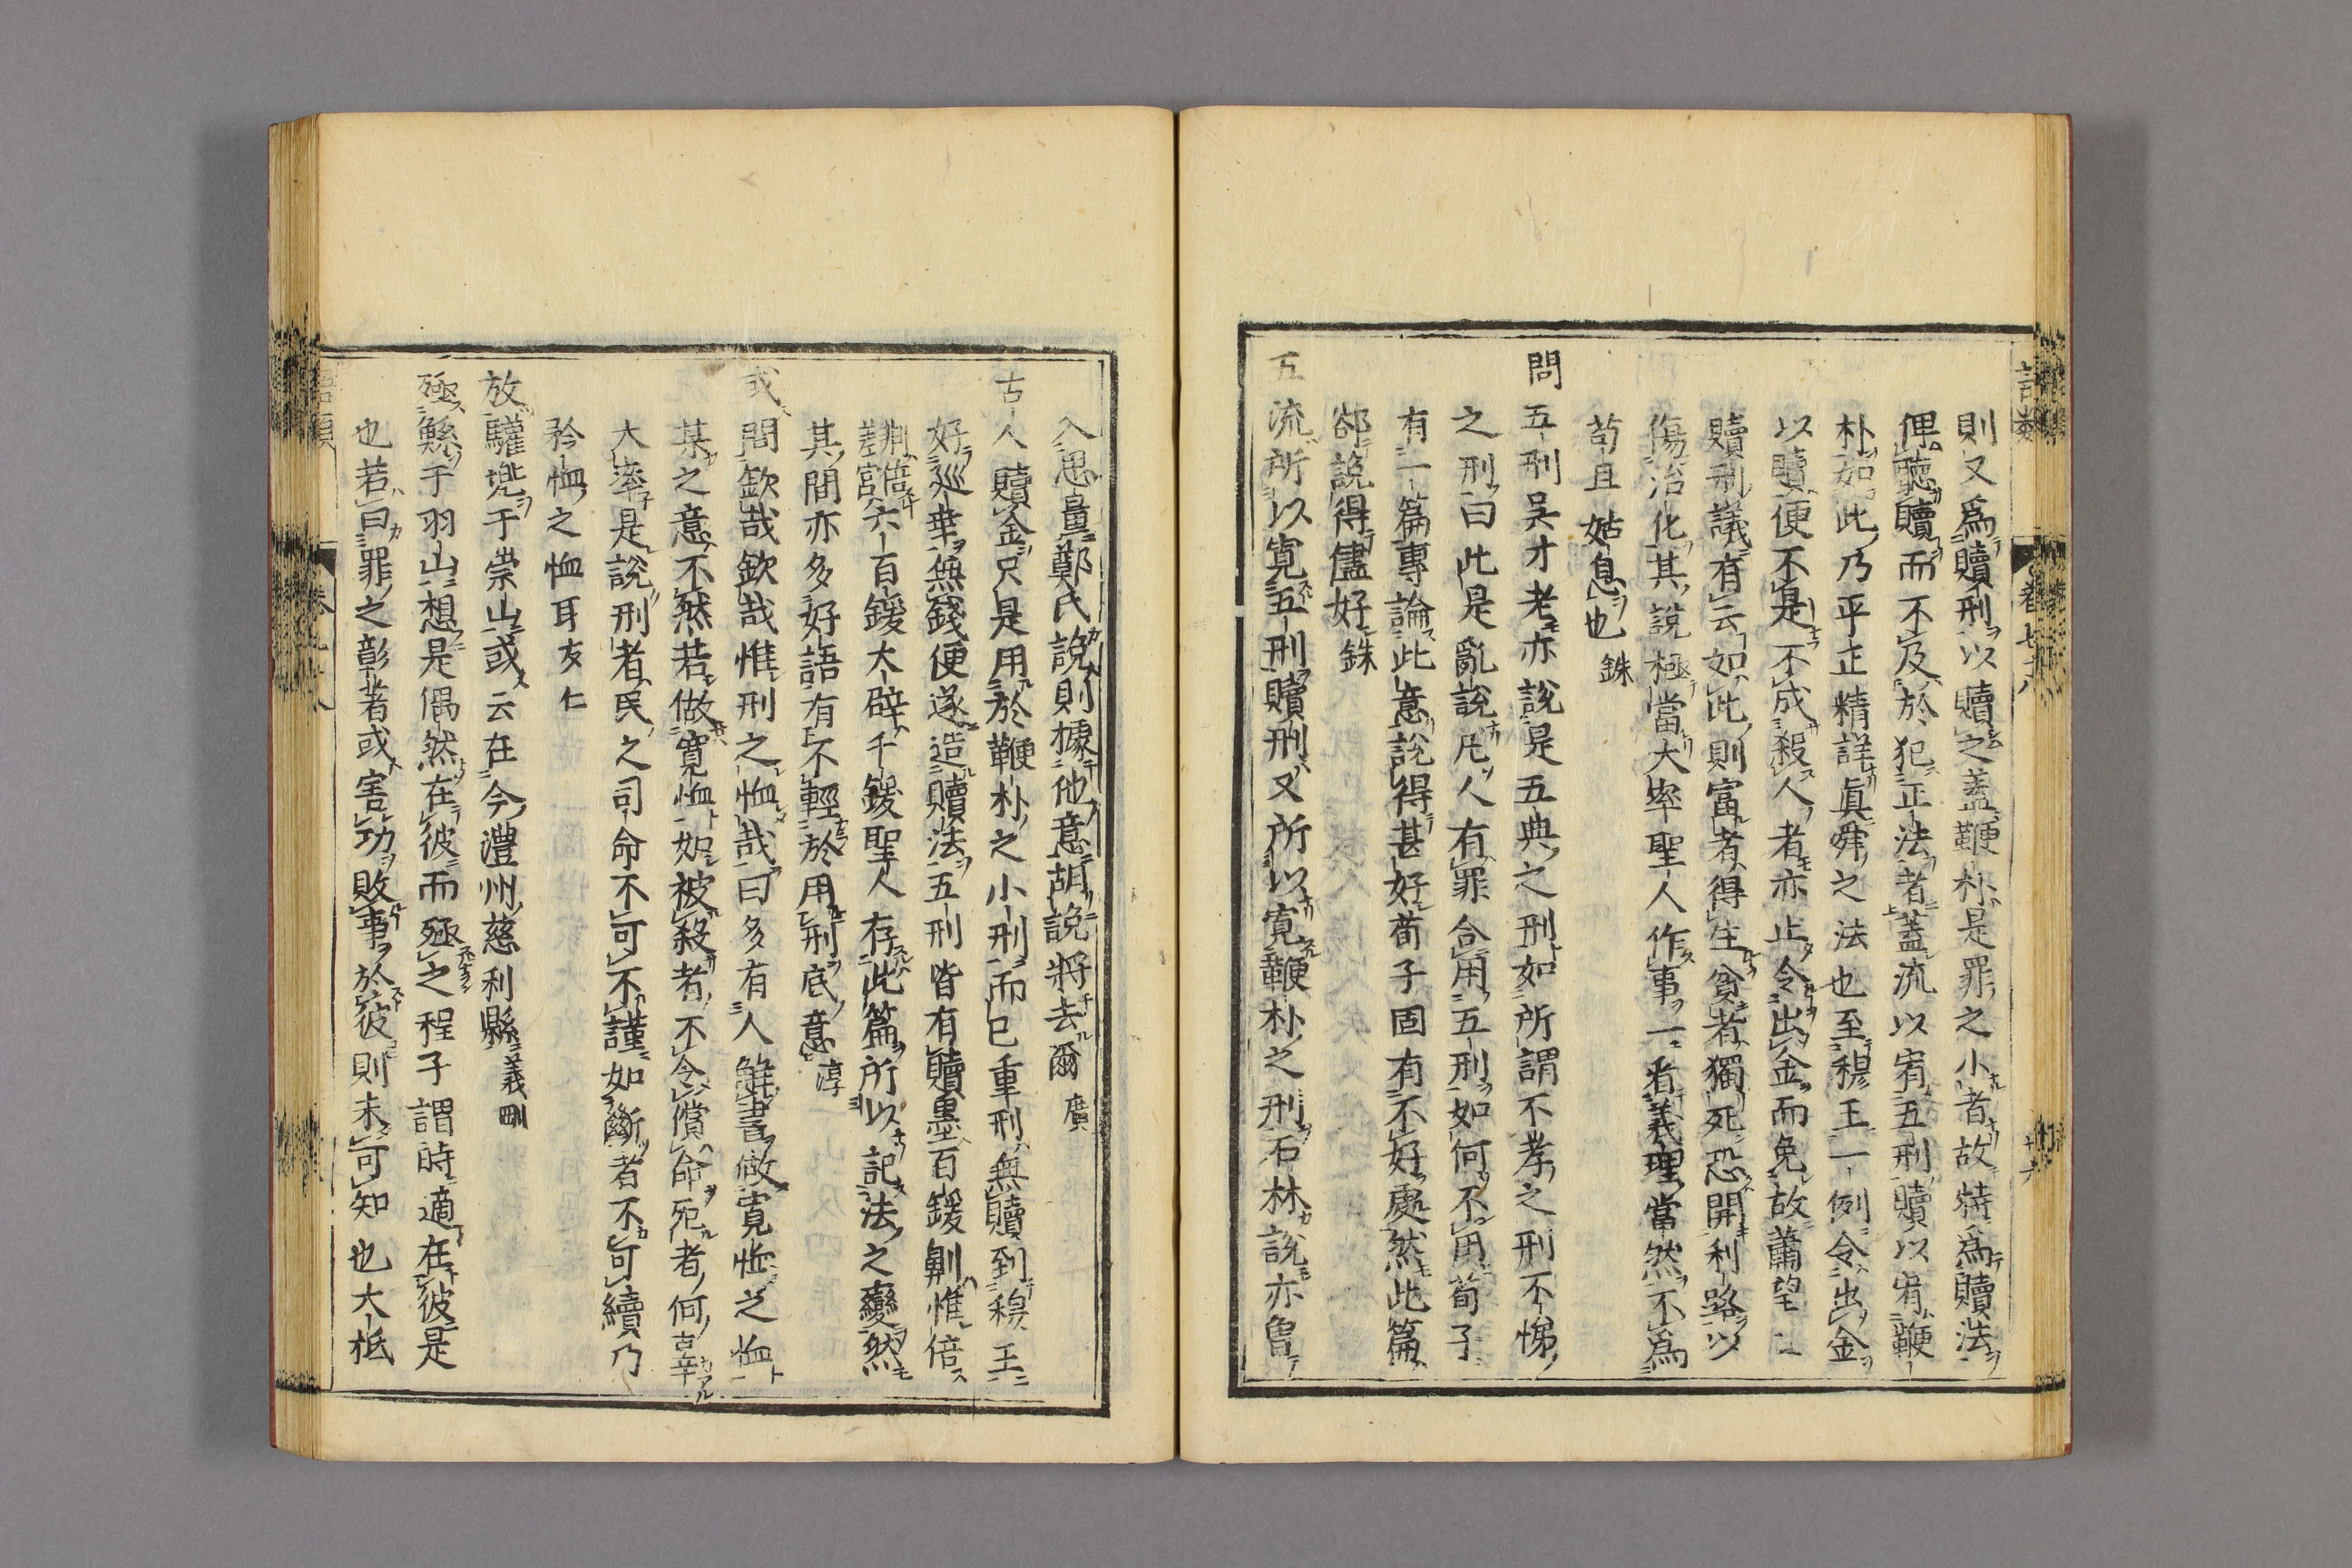 則又爲贖刑以贖之蓋鞭朴是罪之小者故特爲贖法
俾聽贖而不及於犯正法者蓋流以宥五刑贖以宥鞭
朴如此乃平正精詳眞舜之法也至穆王一例令出金
以贖便不是不成殺人者亦止令出金而免故蕭望之
贖刑議有云如此則富者得生貧者獨死恐開利路以
傷治化其說極當大率聖人作事一看義理當然不爲
苟且姑息也 銖
問五刑吳才老亦說是五典之刑如所謂不孝之刑不悌
之刑曰此是亂說凡人有罪合用五刑如何不用荀子
有一篇專論此意說得甚好荀子固有不好處然此篇
卻說得儘好 銖
五流所以寬五刑贖刑又所以寛鞭朴之刑石林說亦曾
入思量鄭氏說則據他意胡說將去爾 廣
古人贖金只是用於鞭朴之小刑而已重刑無贖到穆王
好巡幸無錢便遂造贖法五刑皆有贖墨百鍰劓惟倍
剕倍差宮六百鍰大辟千鍰聖人存此篇所以記法之變然
其間亦多好語有不輕於用刑底意 淳
或問欽哉欽哉惟刑之恤哉曰多有人解書做寛恤之恤
某之意不然若做寛恤如被殺者不令償命死者何辜
大率是說刑者民之司命不可不謹如斷者不可續乃
矜恤之恤耳 友仁
放驩兜于崇山或云在今澧州慈利縣 義剛
殛鯀于羽山想是偶然在彼而殛之程子謂時適在彼是
也若曰罪之彰著或害功敗事於彼則未可知也大抵